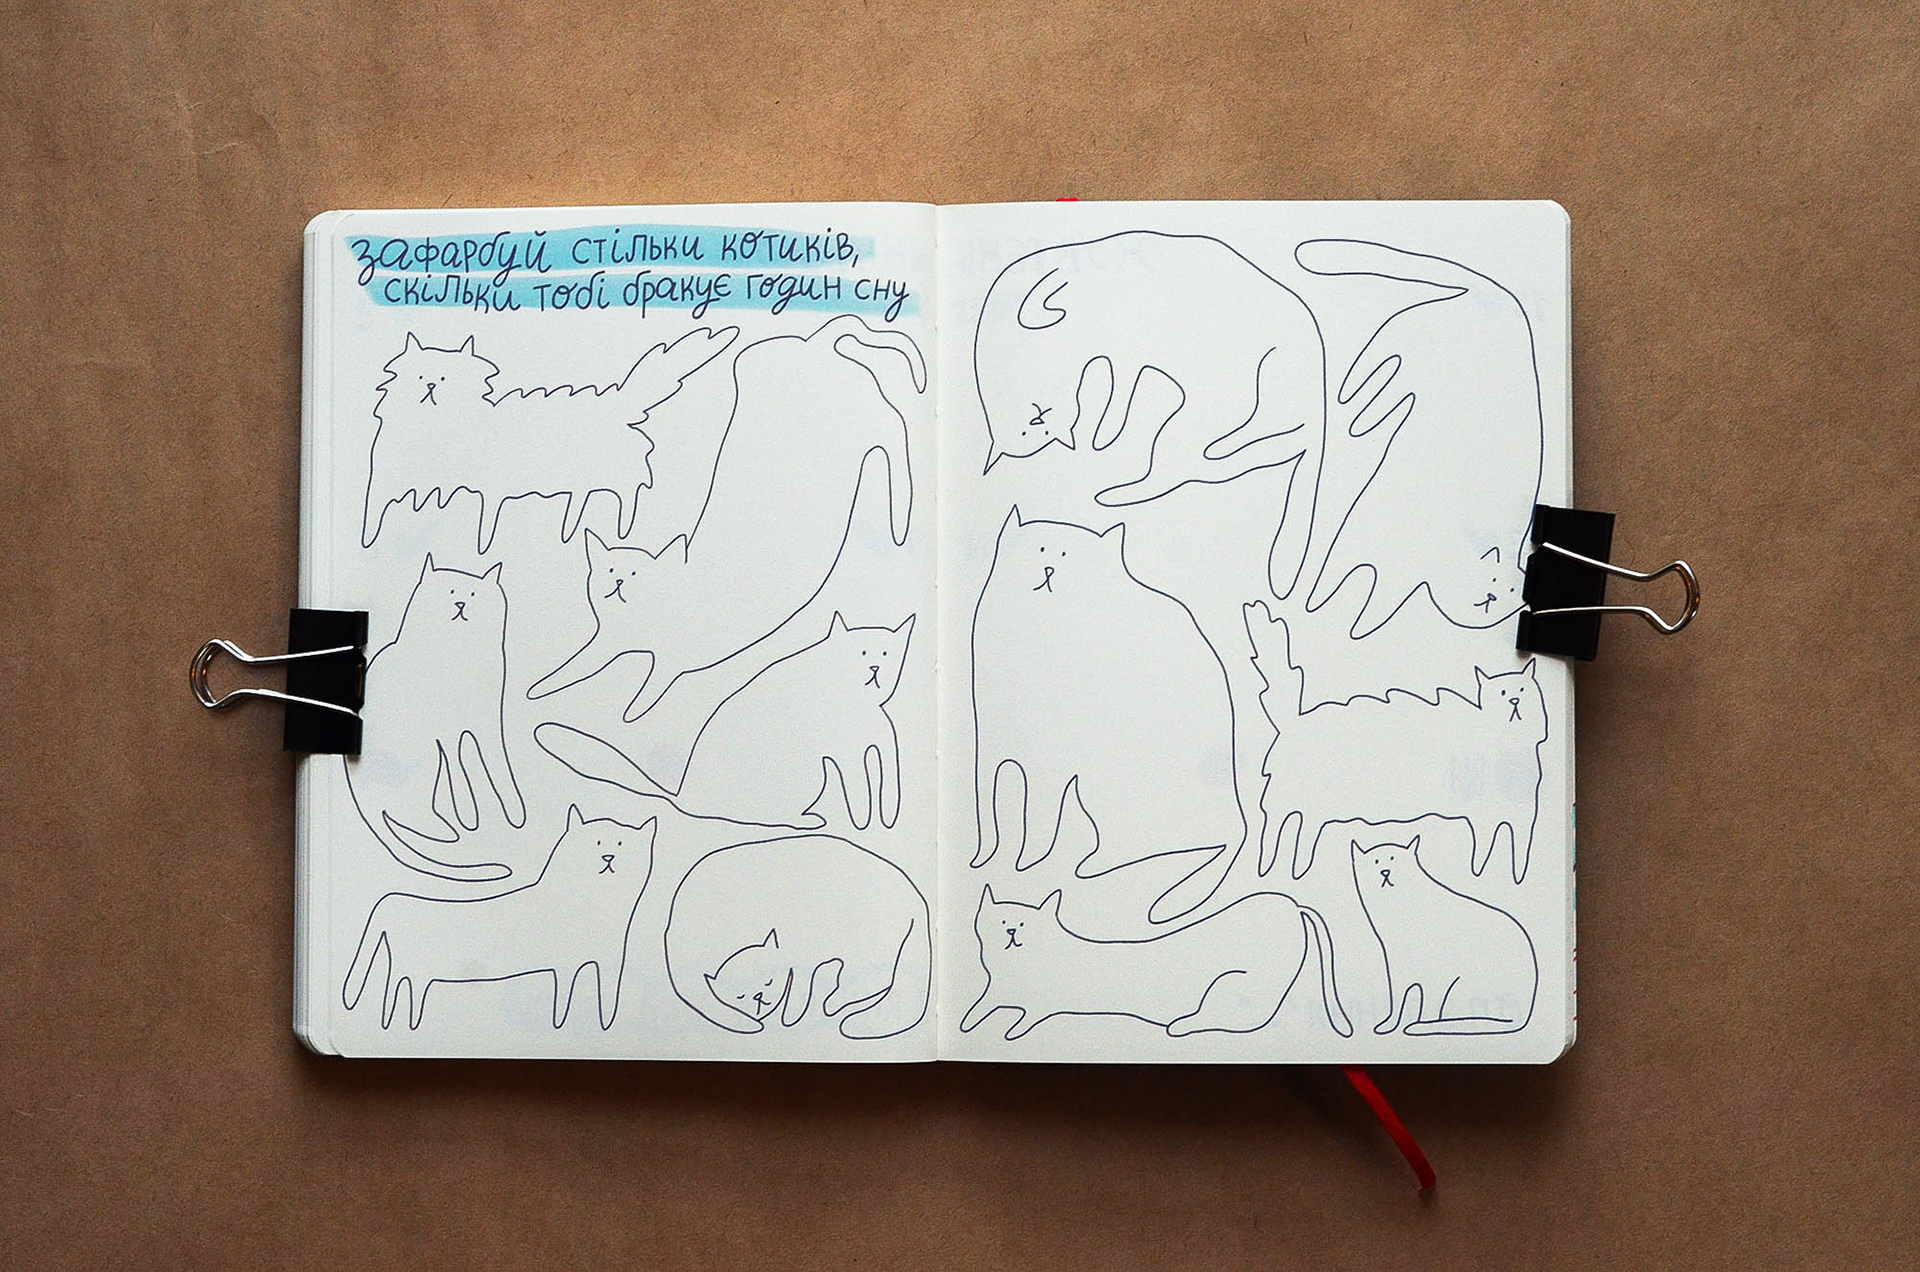 зафарбуй стільки котиків,
скільки тобі бракує годин сну